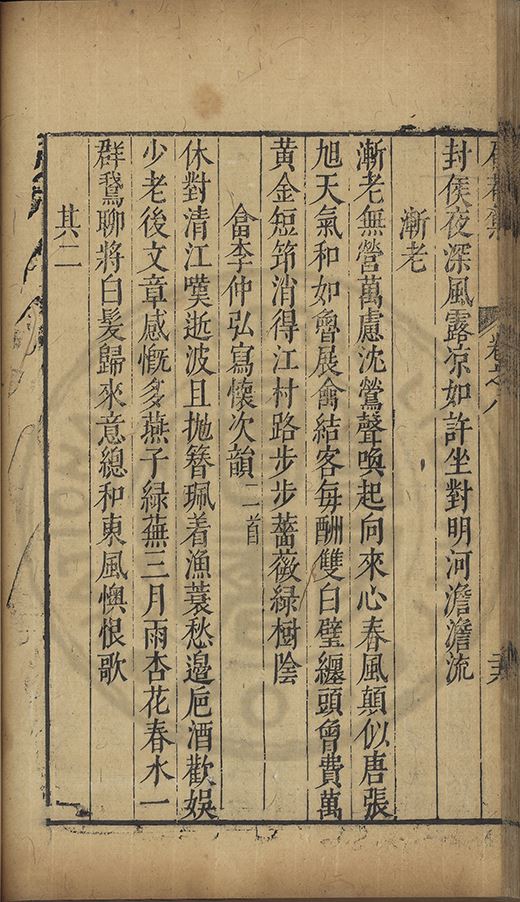 卷之八
封侯夜深風露凉如許坐對明河澹澹流
漸老
漸老無營萬慮沈鶯聲喚起向來心春風顛似唐張
旭天氣和如魯展禽結客每酬雙白璧纏頭曾費萬
黃金短筇消得江村路步步薔薇綠樹陰
畣李仲弘寫懷次韻二首
休對清江嘆逝波且拋簪珮着漁蓑愁邉巵酒歡娛
少老後文章感慨多燕子綠蕪三月雨杏花春水一
群鵞聊將白髮歸來意總和東風懊恨歌
其二